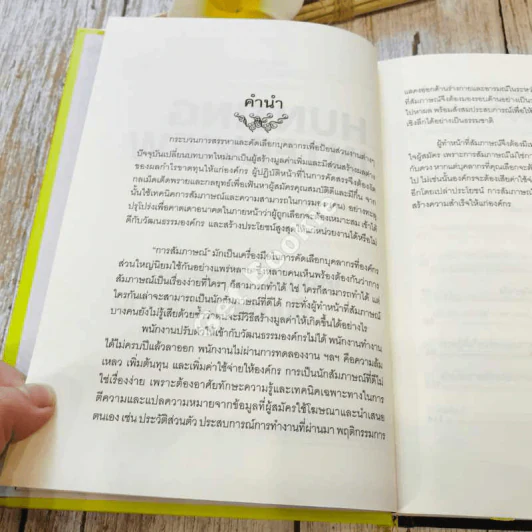 คำนำ
กระบวนการสรรหาและคัดเลือกบุคลากรเพื่อป้อนส่วนงานต่างๆ
ปัจจุบันเปลี่ยนบทบาทใหม่มาเป็นผู้สร้างมูลค่าเพิ่มและมีส่วนสร้างผลต่าง
ของผลกำไรขาดทุนให้แก่องค์กร ผู้ปฏิบัติหน้าที่ในการคัดสรรจึงต้องงัด
กลเม็ดเด็ดพรายและกลยุทธ์เพื่อเฟ้นหาผู้สมัครคุณสมบัติดีและมีกึ๋น จาก
นั้นใช้เทคนิคการสัมภาษณ์และความสามารถในการมองคน อย่างทะลุ
ปรุโปร่งเพื่อคาดเดาอนาคตในภายหน้าว่าผู้ถูกเลือกจะต้องเหมาะสม เข้าได้
ดีกับวัฒนธรรมองค์กร และสร้างประโยชน์สูงสุดให้แก่หน่วยงานได้หรือไม่
"การสัมภาษณ์" มักเป็นเครื่องมือในการคัดเลือกบุคลากรที่องค์กร
ส่วนใหญ่นิยมใช้กันอย่างแพร่หลาย หลายคนเห็นพร้องต้องกันว่าการ
สัมภาษณ์เป็นเรื่องง่ายที่ใครๆ ก็สามารถทำได้ ใช่ ใครก็สามารถทำได้ แต่
ใครกันเล่าจะสามารถเป็นนักสัมภาษณ์ที่ดีได้ กระทั่งผู้ทำหน้าที่สัมภาษณ์
บางคนยังไม่รู้เสียด้วยซ้ำว่าตนจะมีวิธีสร้างมูลค่าให้เกิดขึ้นได้อย่างไร
พนักงานปรับตัวให้เข้ากับวัฒนธรรมองค์กรไม่ได้ พนักงานทำงาน
ได้ไม่ครบปีแล้วลาออก พนักงานไม่ผ่านการทดลองงาน ฯลฯ คือความล้ม
เหลว เพิ่มต้นทุน และเพิ่มค่าใช้จ่ายให้องค์กร การเป็นนักสัมภาษณ์ที่ดีไม่
ใช่เรื่องง่าย เพราะต้องอาศัยทักษะความรู้และเทคนิคเฉพาะทางในการ
ตีความและแปลความหมายจากข้อมูลที่ผู้สมัครใช้โฆษณาและนำเสนอ
ตนเอง เช่น ประวัติส่วนตัว ประสบการณ์การทำงานที่ผ่านมา พฤติกรรมการ
แสดงออกด้านร่างกายและอารมณ์ในระหว่
ที่สัมภาษณ์จึงต้องมองรอบด้านอย่างเป็น
ไปหาผล พร้อมสั่งสมประสบการณ์เพื่อให้
เชิงลึกได้อย่างเป็นธรรมชาติ
ผู้ทำหน้าที่สัมภาษณ์จึงต้องมี
ใจผู้สมัคร เพราะการสัมภาษณ์ไม่ใช่การ
กับดวง หากแต่บุคลากรที่คุณเลือกจะต้อง
ไป ไม่เช่นนั้นองค์กรจะต้องเสียค่าใช้จ่
อีกโดยเปล่าประโยชน์ การสัมภาษณ์
สร้างความสำเร็จให้แก่องค์กร